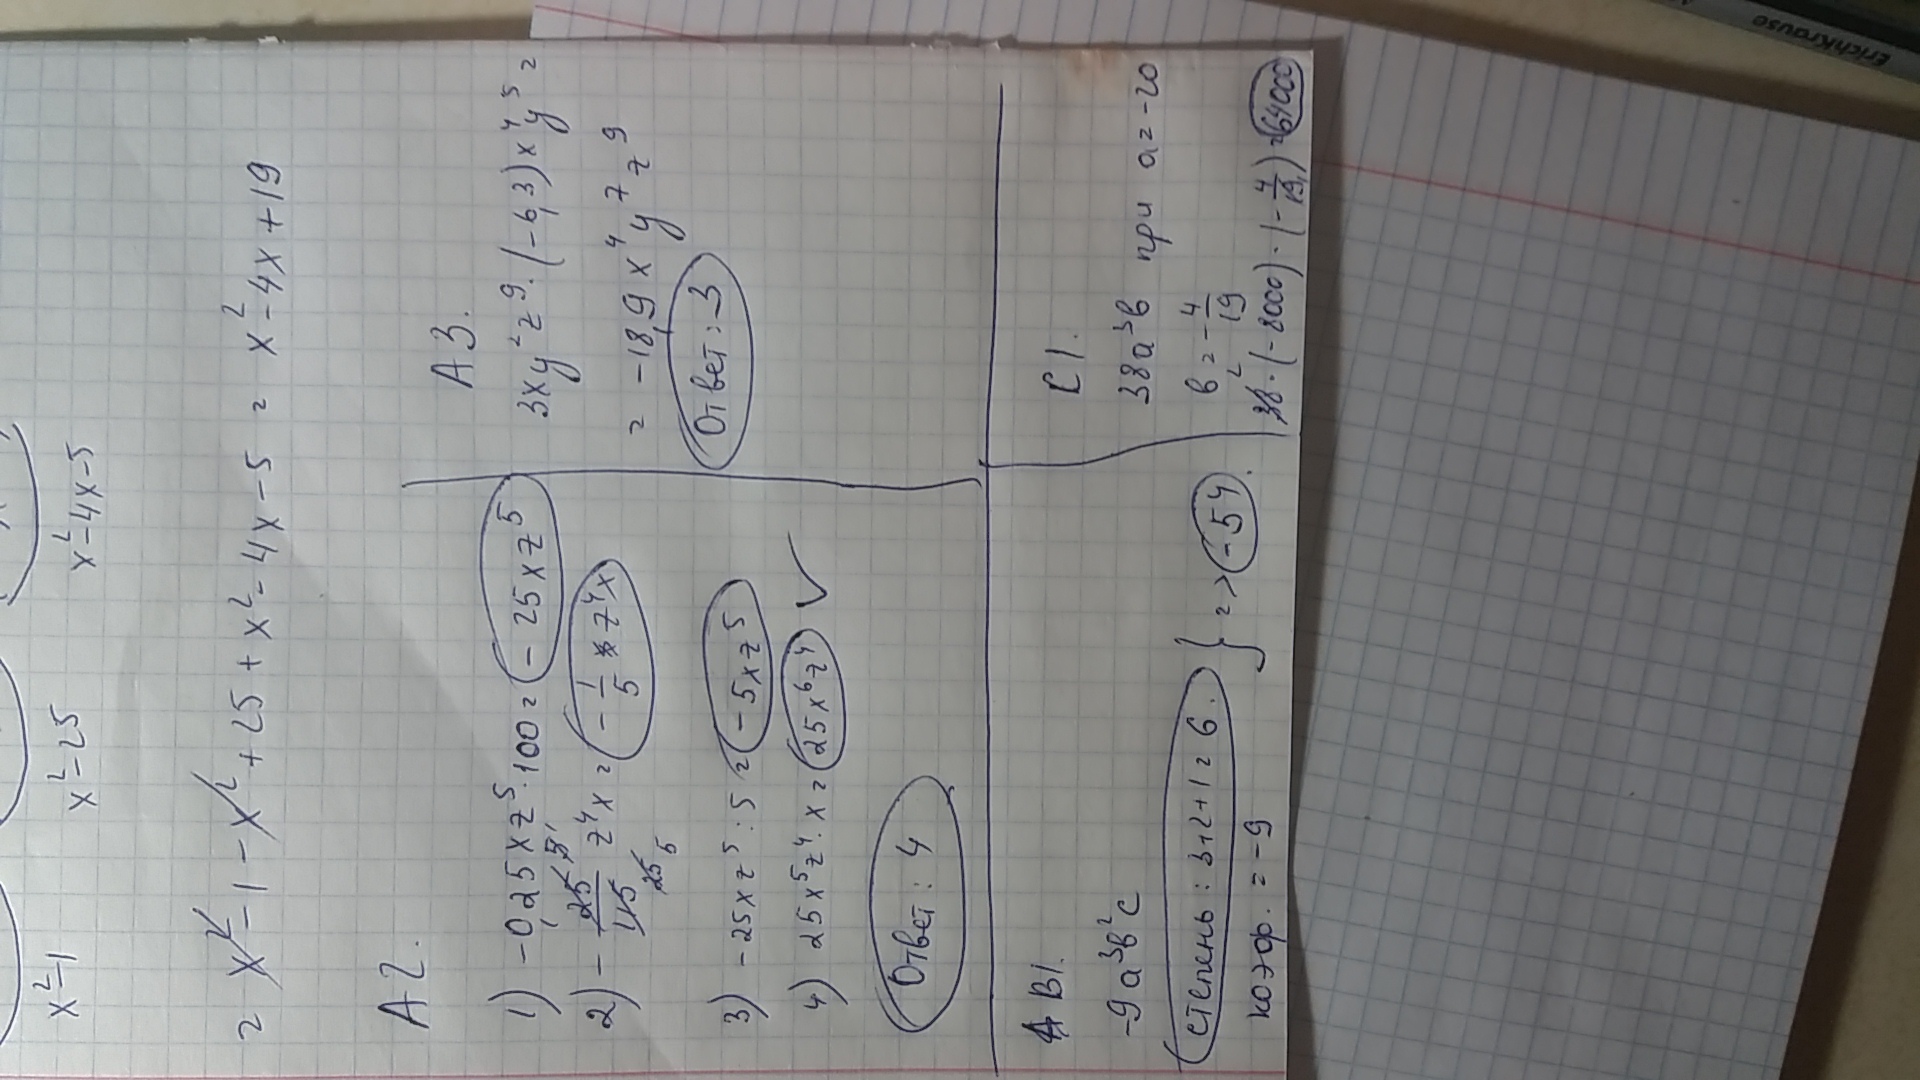 x²-1 x²-25 x²-4x-5
= x²-1-x²+25+x²-4x-5 = x²-4x+19
A2.
1) -0,25xz⁵·100 = -25xz⁵
2) -25/125 z⁴x = -1/5 z⁴x
3) -25xz⁵:5 = -5xz⁵
4) 25x⁵z⁴·x = 25x⁶z⁴ ✓
Ответ: 4
A3.
3xy²z9·(-6,3)x⁴y⁵ =
= -18,9x⁴y⁷z⁹
Ответ: -3
B1.
-9a³b²c
степень: 3+2+1=6.
коэф. = -9
} => -54.
C1.
38a³b при a=-20
b = -4/19
38²·(-8000)·(-4/19) = 64000
ErichKrause